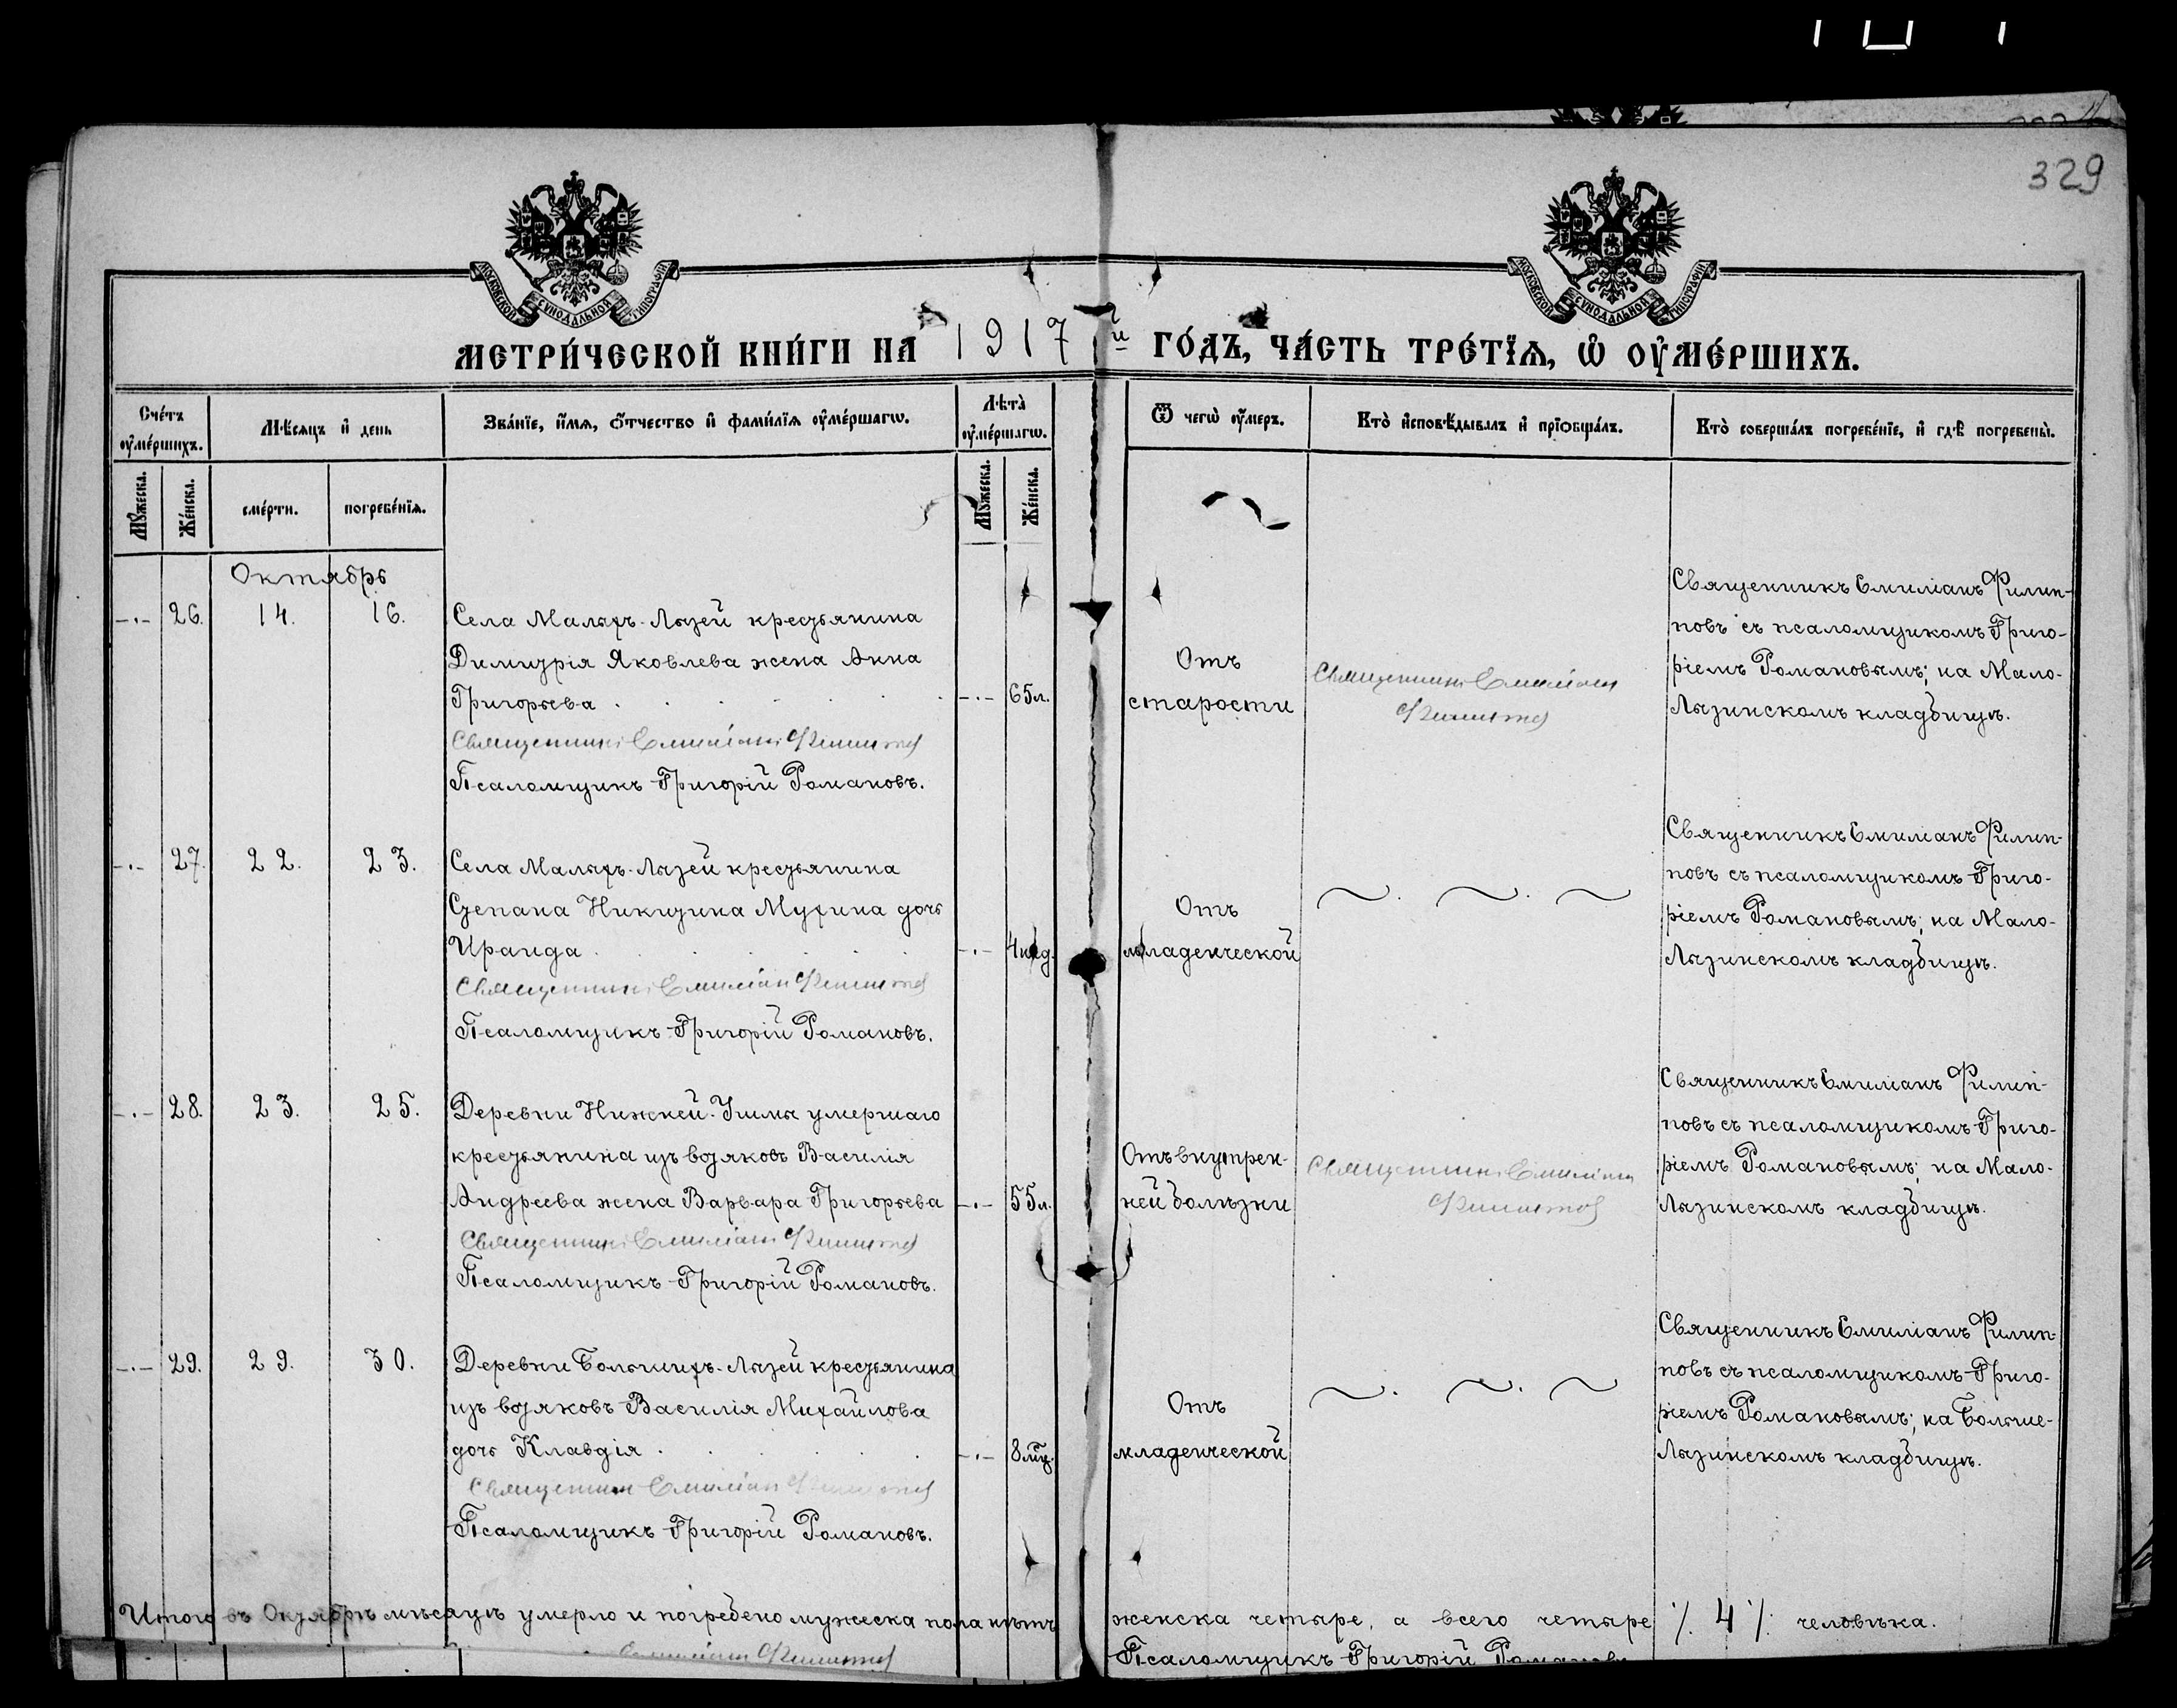 329
МОСКОВСКОЙ СУНОДАЛЬНОЙ ТИПОГРАФІИ
МОСКОВСКОЙ СУНОДАЛЬНОЙ ТИПОГРАФІИ
МЕТРИ́ЧЕСКОЙ КНИ́ГИ НА 1917й ГО́ДЪ, ЧА́СТЬ ТРЕ́ТЇѦ, Ѡ҆ ОУ҆МЕ́РШИХЪ.
Сче́тъ оу҆ме́ршихъ.
Мѣ́сяцъ и҆ день
Зва́нїе, и҆́мѧ, ѻ҆́тчество и҆ фами́лїѧ оу҆ме́ршагѡ.
Лѣта̀ оу҆ме́ршагѡ.
Ѿ чегѡ̀ оу҆́меръ.
Кто̀ и҆сповѣ́дывалъ и҆ прїѡбща́лъ.
Кто̀ соверша́лъ погребе́нїе, и҆ гдѣ̀ погребены̀.
Мꙋ́жеска.
Же́нска.
сме́рти.
погребе́нїѧ.
Мꙋ́жеска.
Же́нска.
Октябрь
-.- 26. 14. 16.
Села Малыхъ-Лызей крестьянина
Димитрія Яковлева жена Анна
Григорьева . . . . . -.- 65л.
Священникъ Емиліанъ Филиппов
Псаломщикъ Григорій Романовъ.
Отъ
старости
Священникъ Емиліанъ
Филиппов
Священникъ Емиліанъ Филип-
повъ съ псаломщикомъ Григо-
ріемъ Романовымъ; на Мало-
Лызинскомъ кладбищѣ.
-.- 27. 22. 23.
Села Малыхъ-Лызей крестьянина
Степана Никитина Мухина дочь
Ираида . . . . . -.- 4нед.
Священникъ Емиліан Филиппов
Псаломщикъ Григорій Романовъ.
Отъ
младенческой
Священникъ Емиліанъ Филип-
повъ съ псаломщикомъ Григо-
ріемъ Романовымъ; на Мало-
Лызинскомъ кладбищѣ.
-.- 28. 23. 25.
Деревни Нижней-Ушмы умершаго
крестьянина изъ вотяковъ Василія
Андреева жена Варвара Григорьева -.- 55л.
Священникъ Емиліанъ Филиппов
Псаломщикъ Григорій Романовъ.
Отъ внутрен-
ней болѣзни
Священникъ Емиліан
Филиппов
Священникъ Емиліанъ Филип-
повъ съ псаломщикомъ Григо-
ріемъ Романовымъ; на Мало-
Лызинскомъ кладбищѣ.
-.- 29. 29. 30.
Деревни Большихъ-Лызей крестьянина
изъ вотяковъ Василія Михайлова
дочь Клавдія . . . . . -.- 8мц.
Священник Емиліан Филиппов
Псаломщикъ Григорій Романовъ.
Отъ
младенческой
Священникъ Емиліанъ Филип-
повъ съ псаломщикомъ Григо-
ріемъ Романовымъ; на Больше-
Лызинскомъ кладбищѣ.
Итого въ Октябрѣ мѣсяцѣ умерло и погребено мужеска пола нѣтъ женска четыре, а всего четыре ·/. 4 ·/. человѣка.
Емиліан Филиппов
Псаломщикъ Григорій Романовъ